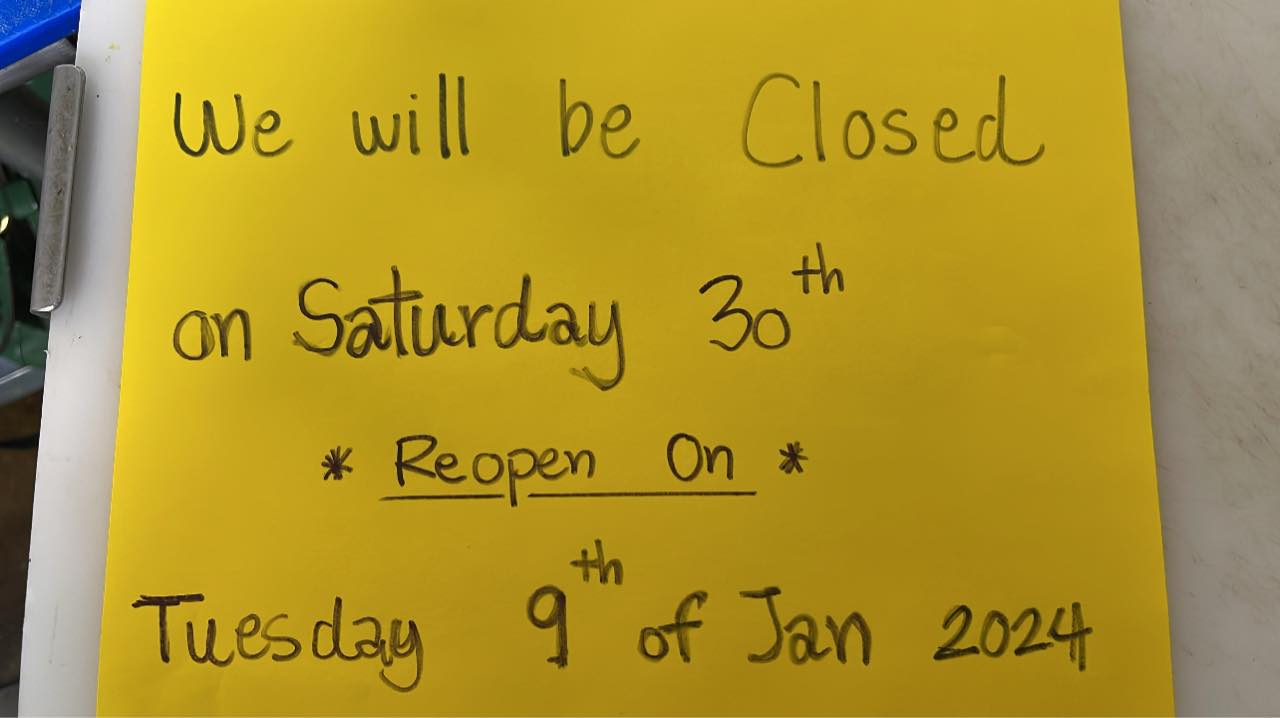 We will be Closed
on Saturday 30th
* Reopen On *
Tuesday 9th of Jan 2024